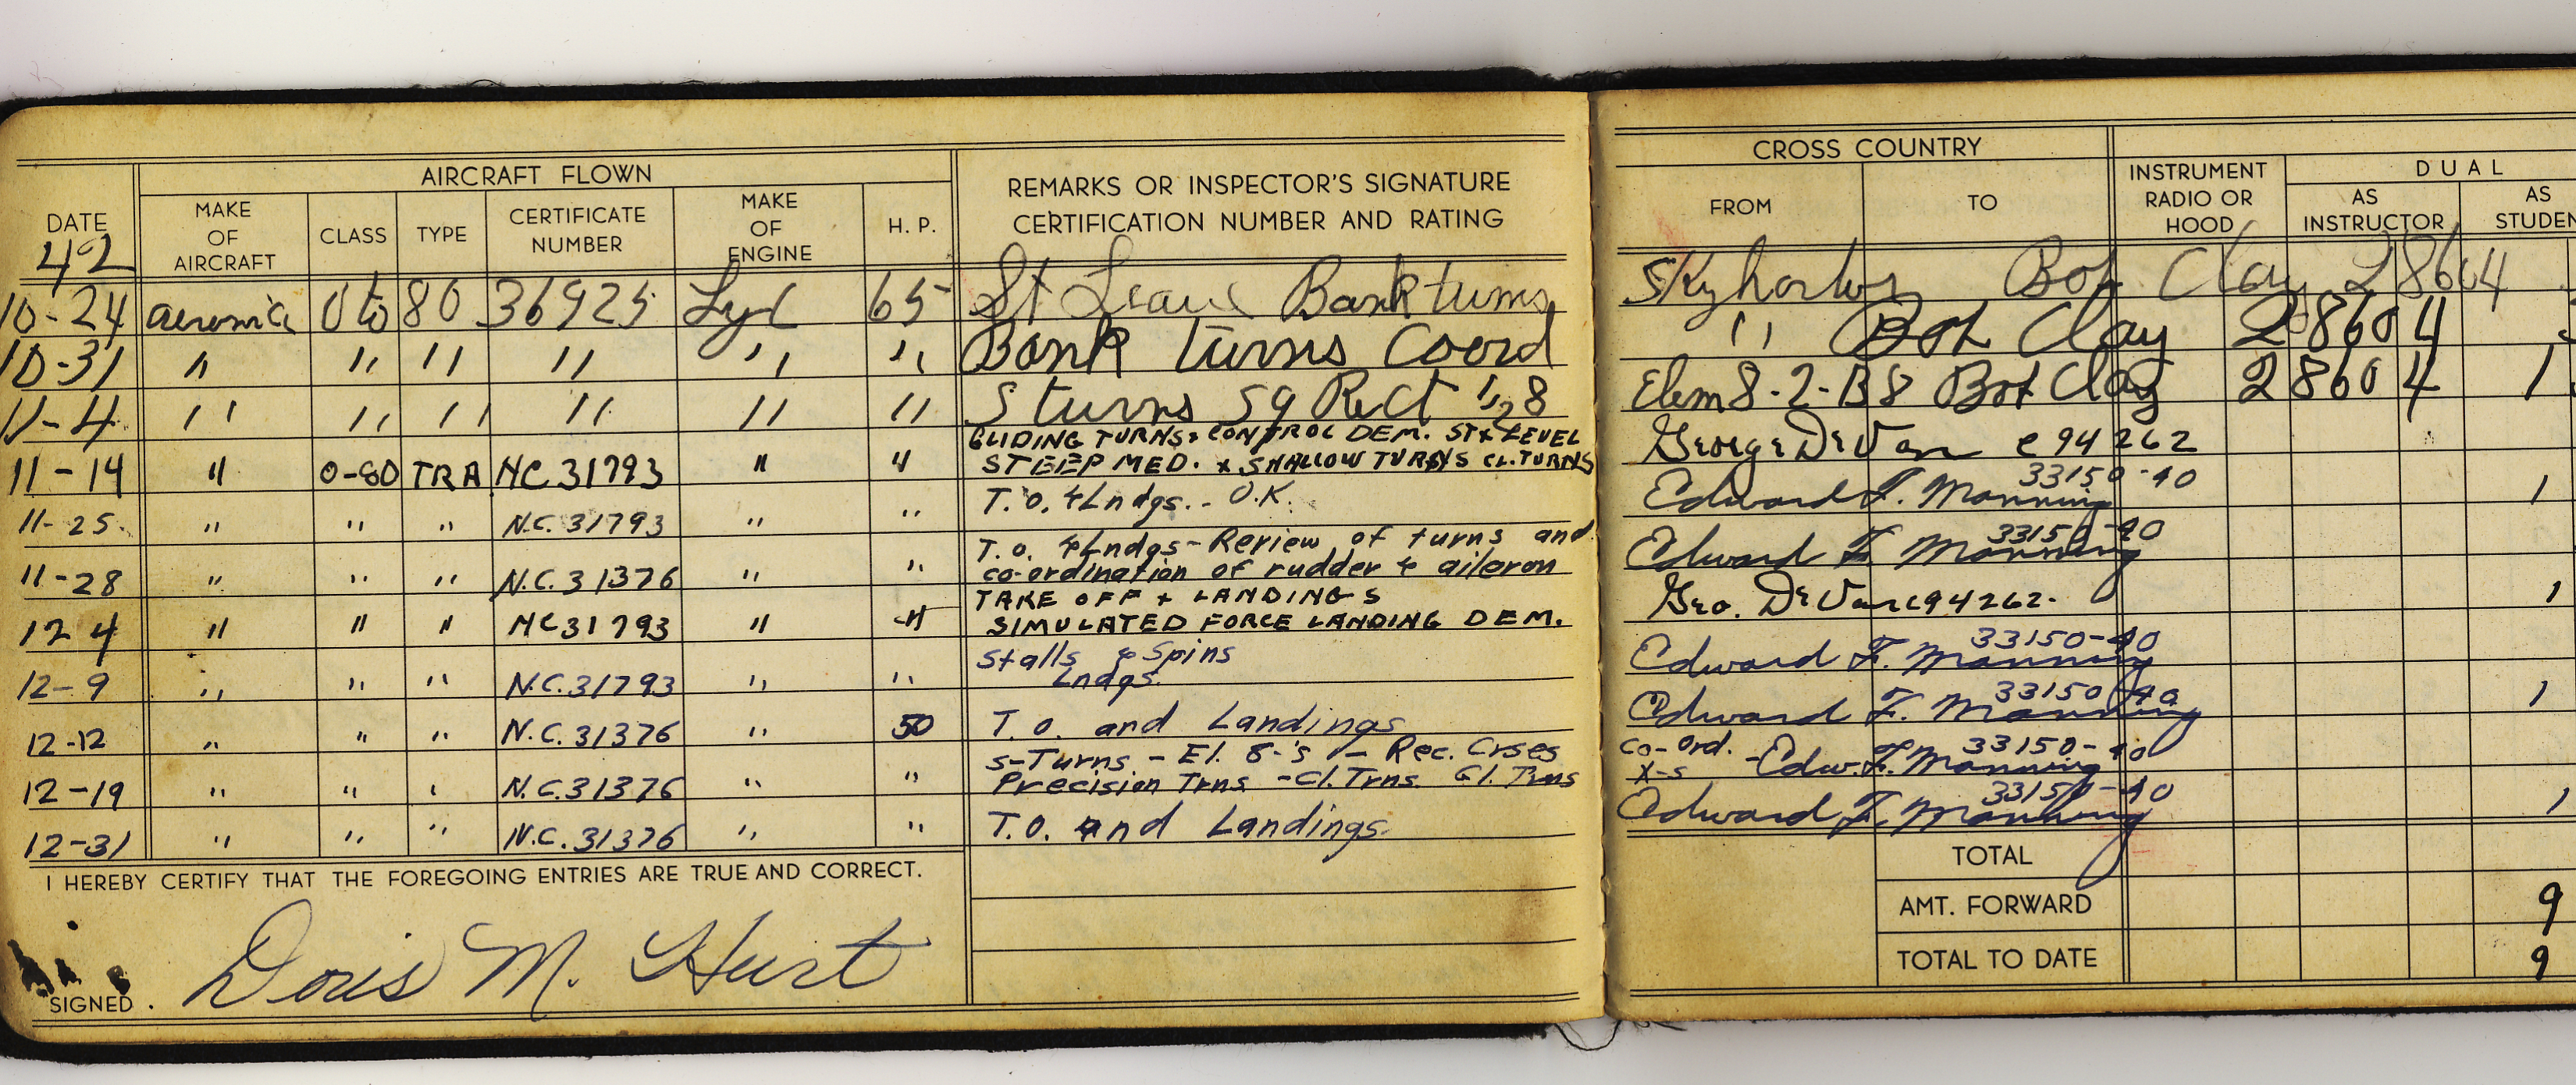 AIRCRAFT FLOWN
DATE
42
MAKE OF AIRCRAFT
CLASS
TYPE
CERTIFICATE NUMBER
MAKE OF ENGINE
H. P.
REMARKS OR INSPECTOR'S SIGNATURE
CERTIFICATION NUMBER AND RATING
CROSS COUNTRY
FROM
TO
INSTRUMENT RADIO OR HOOD
DUAL
AS INSTRUCTOR
AS STUDEN
10-24 aeronica 0 to 80 36925 Lyc 65 St Leave Bank turns Skyharbor Bob Clay 28604
10-31 " " " " " " Bank turns Coord " Bob Clay 28604
11-4 " " " " " " S turns Sq Rect 1,2 8 Elem 8-2-B8 Bob Clay 28604 1
GLIDING TURNS & CONTROL DEM. ST & LEVEL
11-14 " 0-80 TRA NC 31793 " " STEEP MED. & SHALLOW TURNS CL. TURNS George DeVan c 94262
11-25 " " " N.C. 31793 " " T.O. & Lndgs. - O.K. Edward F. Manning 33150-40 1
T.O. & Lndgs - Review of turns and
11-28 " " " N.C. 31376 " " co-ordination of rudder & aileron Edward F. Manning 33150-40
TAKE OFF + LANDINGS
12 4 " " " NC 31793 " " SIMULATED FORCE LANDING DEM. Geo. DeVan c94262. 1
Stalls & Spins
12-9 " " " N.C. 31793 " " Lndgs. Edward F. Manning 33150-40
12-12 " " " N.C. 31376 " 50 T.O. and Landings Edward F. Manning 33150-40 1
S-Turns - El. 8-'s - Rec. Crses co-ord.
12-19 " " " N.C. 31376 " " Precision Trns - Cl. Trns. Gl. Trns X-s - Edw. F. Manning 33150-40
12-31 " " " N.C. 31376 " " T.O. and Landings. Edward F. Manning 33150-40 1
I HEREBY CERTIFY THAT THE FOREGOING ENTRIES ARE TRUE AND CORRECT.
SIGNED. Doris M. Hurt
TOTAL
AMT. FORWARD 9
TOTAL TO DATE 9